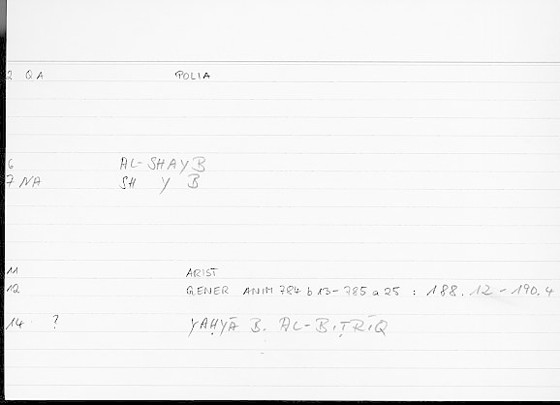 2 QA POLIA
6 AL-SHAYB
7 NA SH Y B
11 ARIST
12 GENER ANIM 784 b 13-785 a 25 : 188.12-190.4
14 ? YAḤYĀ B. AL-BIṬRĪQ